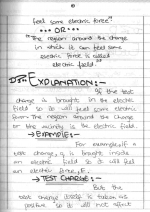 feel some electric force"
*** OR ***
"The region around the charge
in which it can feel some
electric force is called
electric field"
EXPLANATION :-
If the test
charge is brought in the electric
field so it will feel some electric
force. The region around the charge
or the vicinity is the electric field.
→ EXAMPLE :-
For example, if a
test charge, q, is brought inside
an electric field so it will feel
an electric force, F.
→ TEST CHARGE :-
But the
test charge itself is taken as
positive so it will not affect